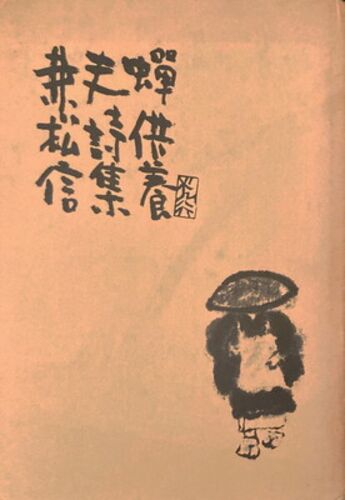 兼松信
夫詩集
蟬供養